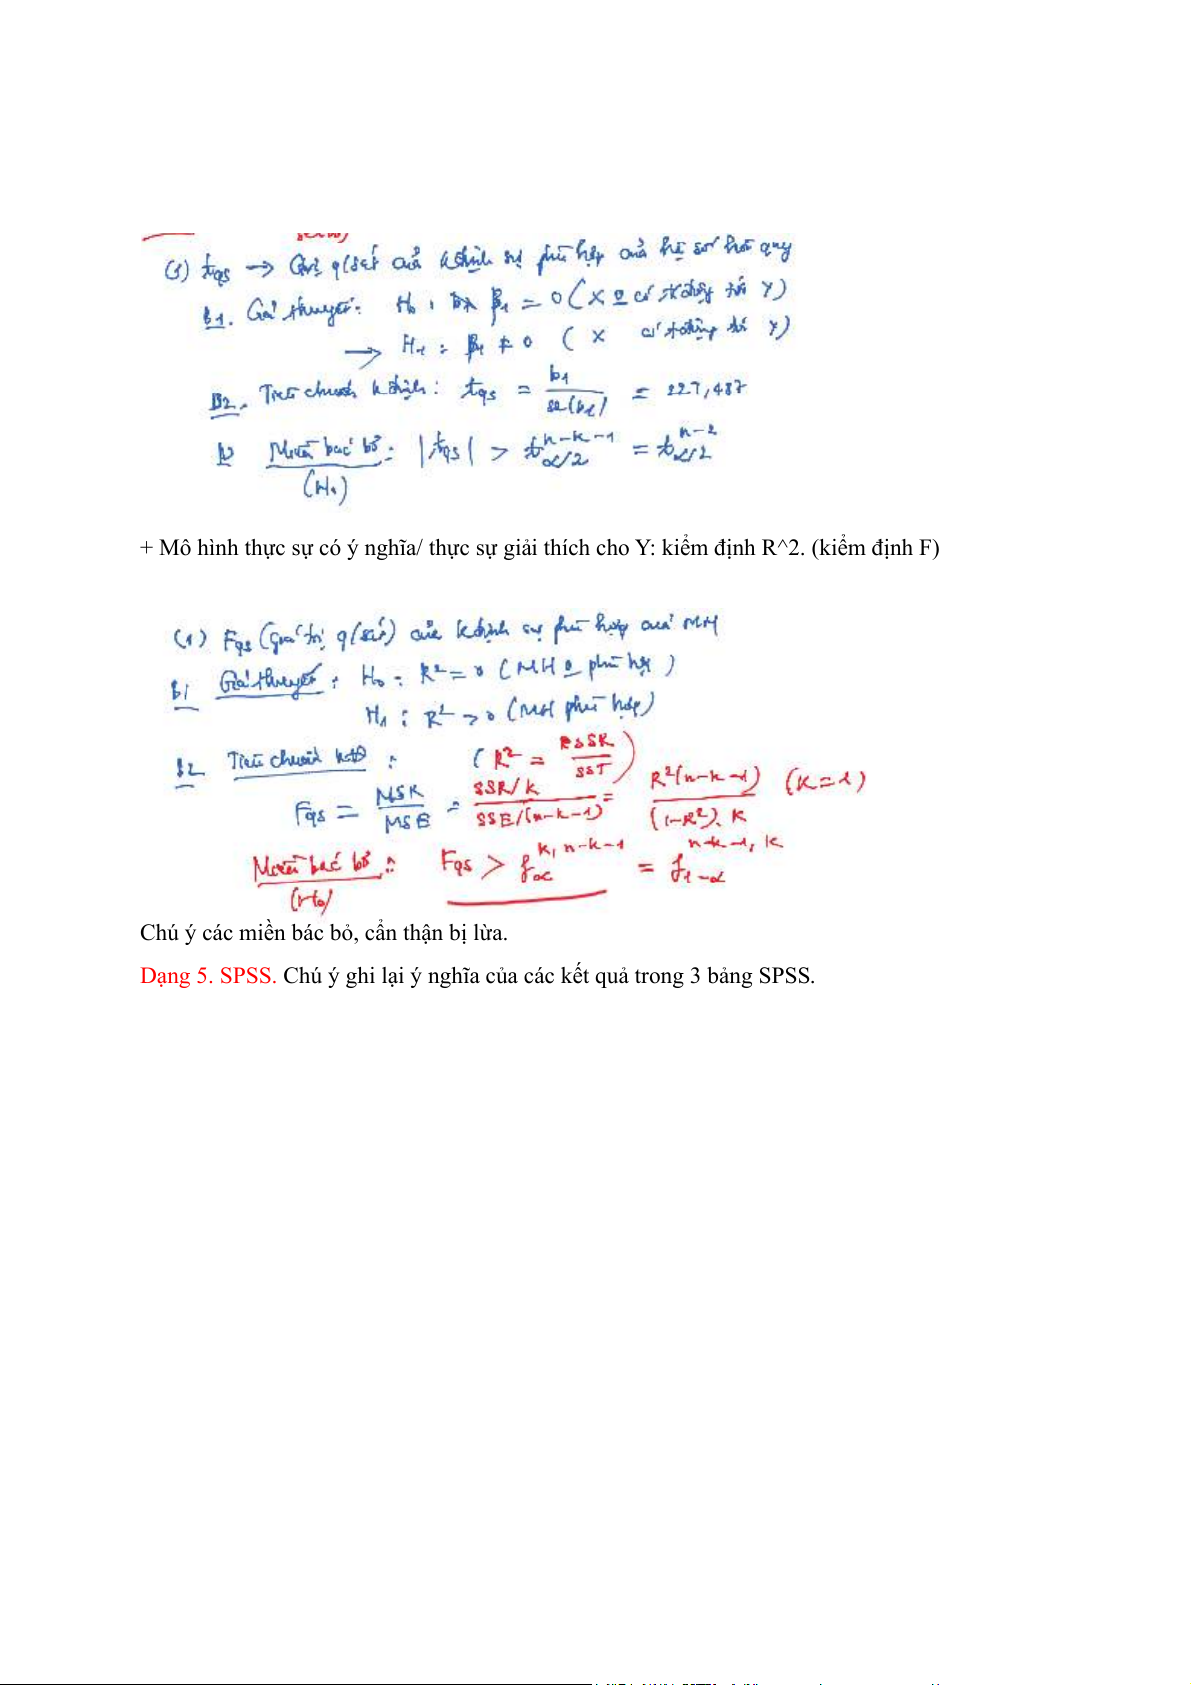 (1) tqs → Giá trị q/sát của k định sự phù hợp của hệ số hồi quy
B1. Giả thuyết: H₀ : β₁ = 0 (X o có t động tới Y)
→ H₁ : β₁ ≠ 0 ( X có t động tới Y)
B2. Tiêu chuẩn k định: tqs = b₁ / se(b₁) = 227,487
Miền bác bỏ: |tqs| > t^{n-k-1}_{α/2} = t^{n-2}_{α/2}
(H₀)
+ Mô hình thực sự có ý nghĩa/ thực sự giải thích cho Y: kiểm định R^2. (kiểm định F)
(1) Fqs (giá trị q/sát) của k định sự phù hợp của MH
B1 Giả thuyết : H₀ : R² = 0 (MH o phù hợp)
H₁ : R² > 0 (MH phù hợp)
B2 Tiêu chuẩn KĐ : (R² = SSR / SST)
Fqs = MSR / MSE = SSR/k / SSE/(n-k-1) = R²(n-k-1) / (1-R²).k (k=1)
Miền bác bỏ : Fqs > f^{k, n-k-1}_{α} = f^{n-k-1, k}_{1-α}
(H₀)
Chú ý các miền bác bỏ, cẩn thận bị lừa.
Dạng 5. SPSS. Chú ý ghi lại ý nghĩa của các kết quả trong 3 bảng SPSS.